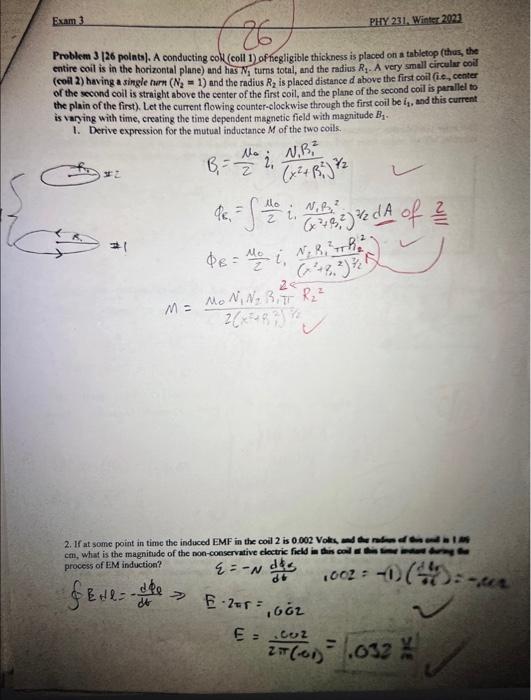 Exam 3
PHY 231, Winter 2023
26
Problem 3 [26 points]. A conducting coil (coil 1) of negligible thickness is placed on a tabletop (thus, the
entire coil is in the horizontal plane) and has N₁ turns total, and the radius R₁. A very small circular coil
(coil 2) having a single turn (N₂ = 1) and the radius R₂ is placed distance d above the first coil (i.e., center
of the second coil is straight above the center of the first coil, and the plane of the second coil is parallel to
the plain of the first). Let the current flowing counter-clockwise through the first coil be i₁, and this current
is varying with time, creating the time dependent magnetic field with magnitude B₁.
1. Derive expression for the mutual inductance M of the two coils.
#2
B₁ = μ₀/2 i₁ N₁R₁²/(x²+R₁²)^3/2
#1
Φ = ∫ μ₀/2 i₁ N₁R₁²/(x²+R₁²)^3/2 dA of 2
Φ_B = μ₀/2 i₁ N₂R₁²πR₂²/(x²+R₁²)^3/2
M = μ₀N₁N₂R₁²π R₂²/2(x²+R₁²)^3/2
2. If at some point in time the induced EMF in the coil 2 is 0.002 Volts, and the radius of this coil is
cm, what is the magnitude of the non-conservative electric field in this coil at this time instant during the
process of EM induction?
ε = -N dΦ/dt
.002 = -(1)
∮E dl = -dΦ/dt ⇒ E·2πr = .002
E = .002/2π(.01) = .032 V/m